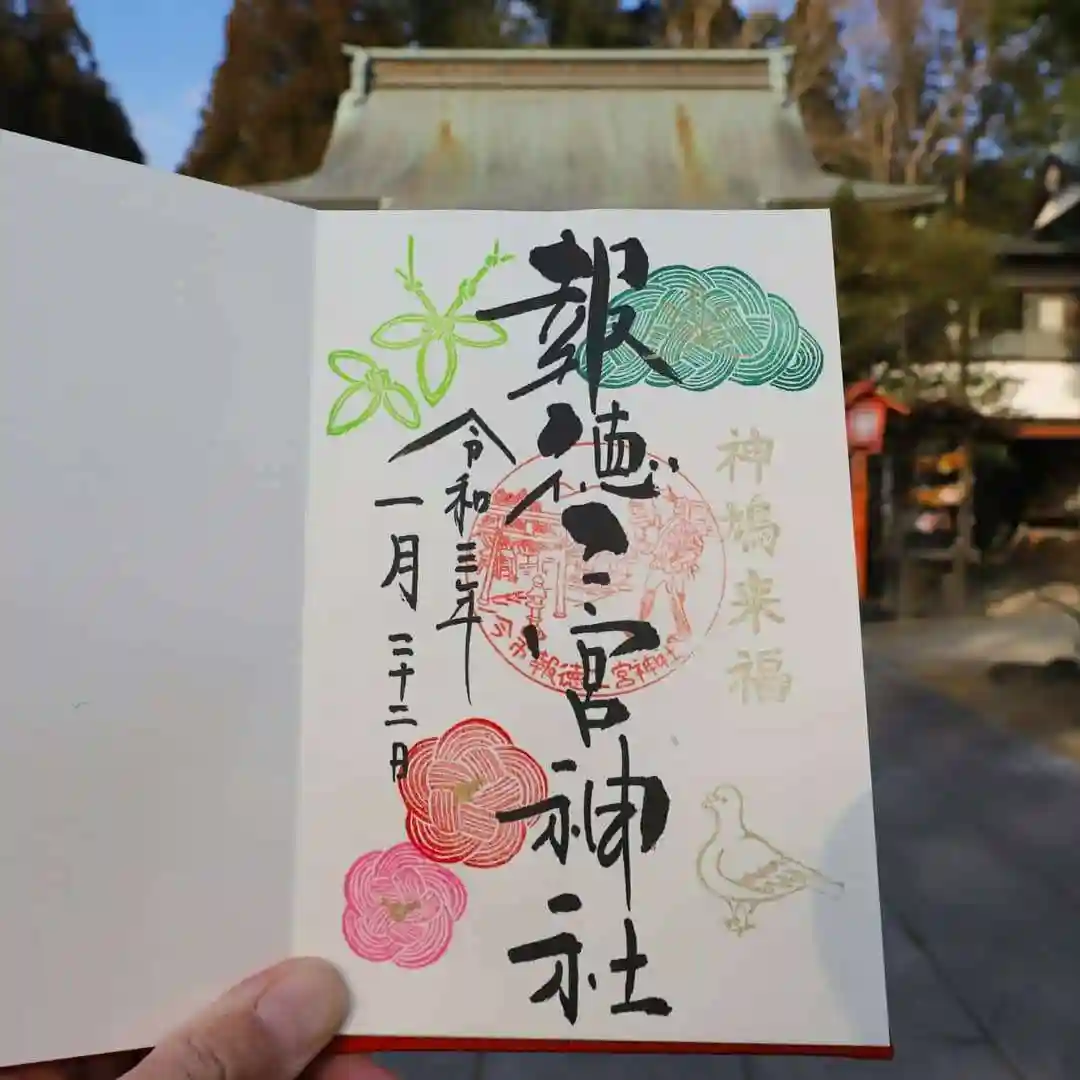 神鳩来福
報徳二宮神社
今市報徳二宮神社
令和三年
一月二十二日